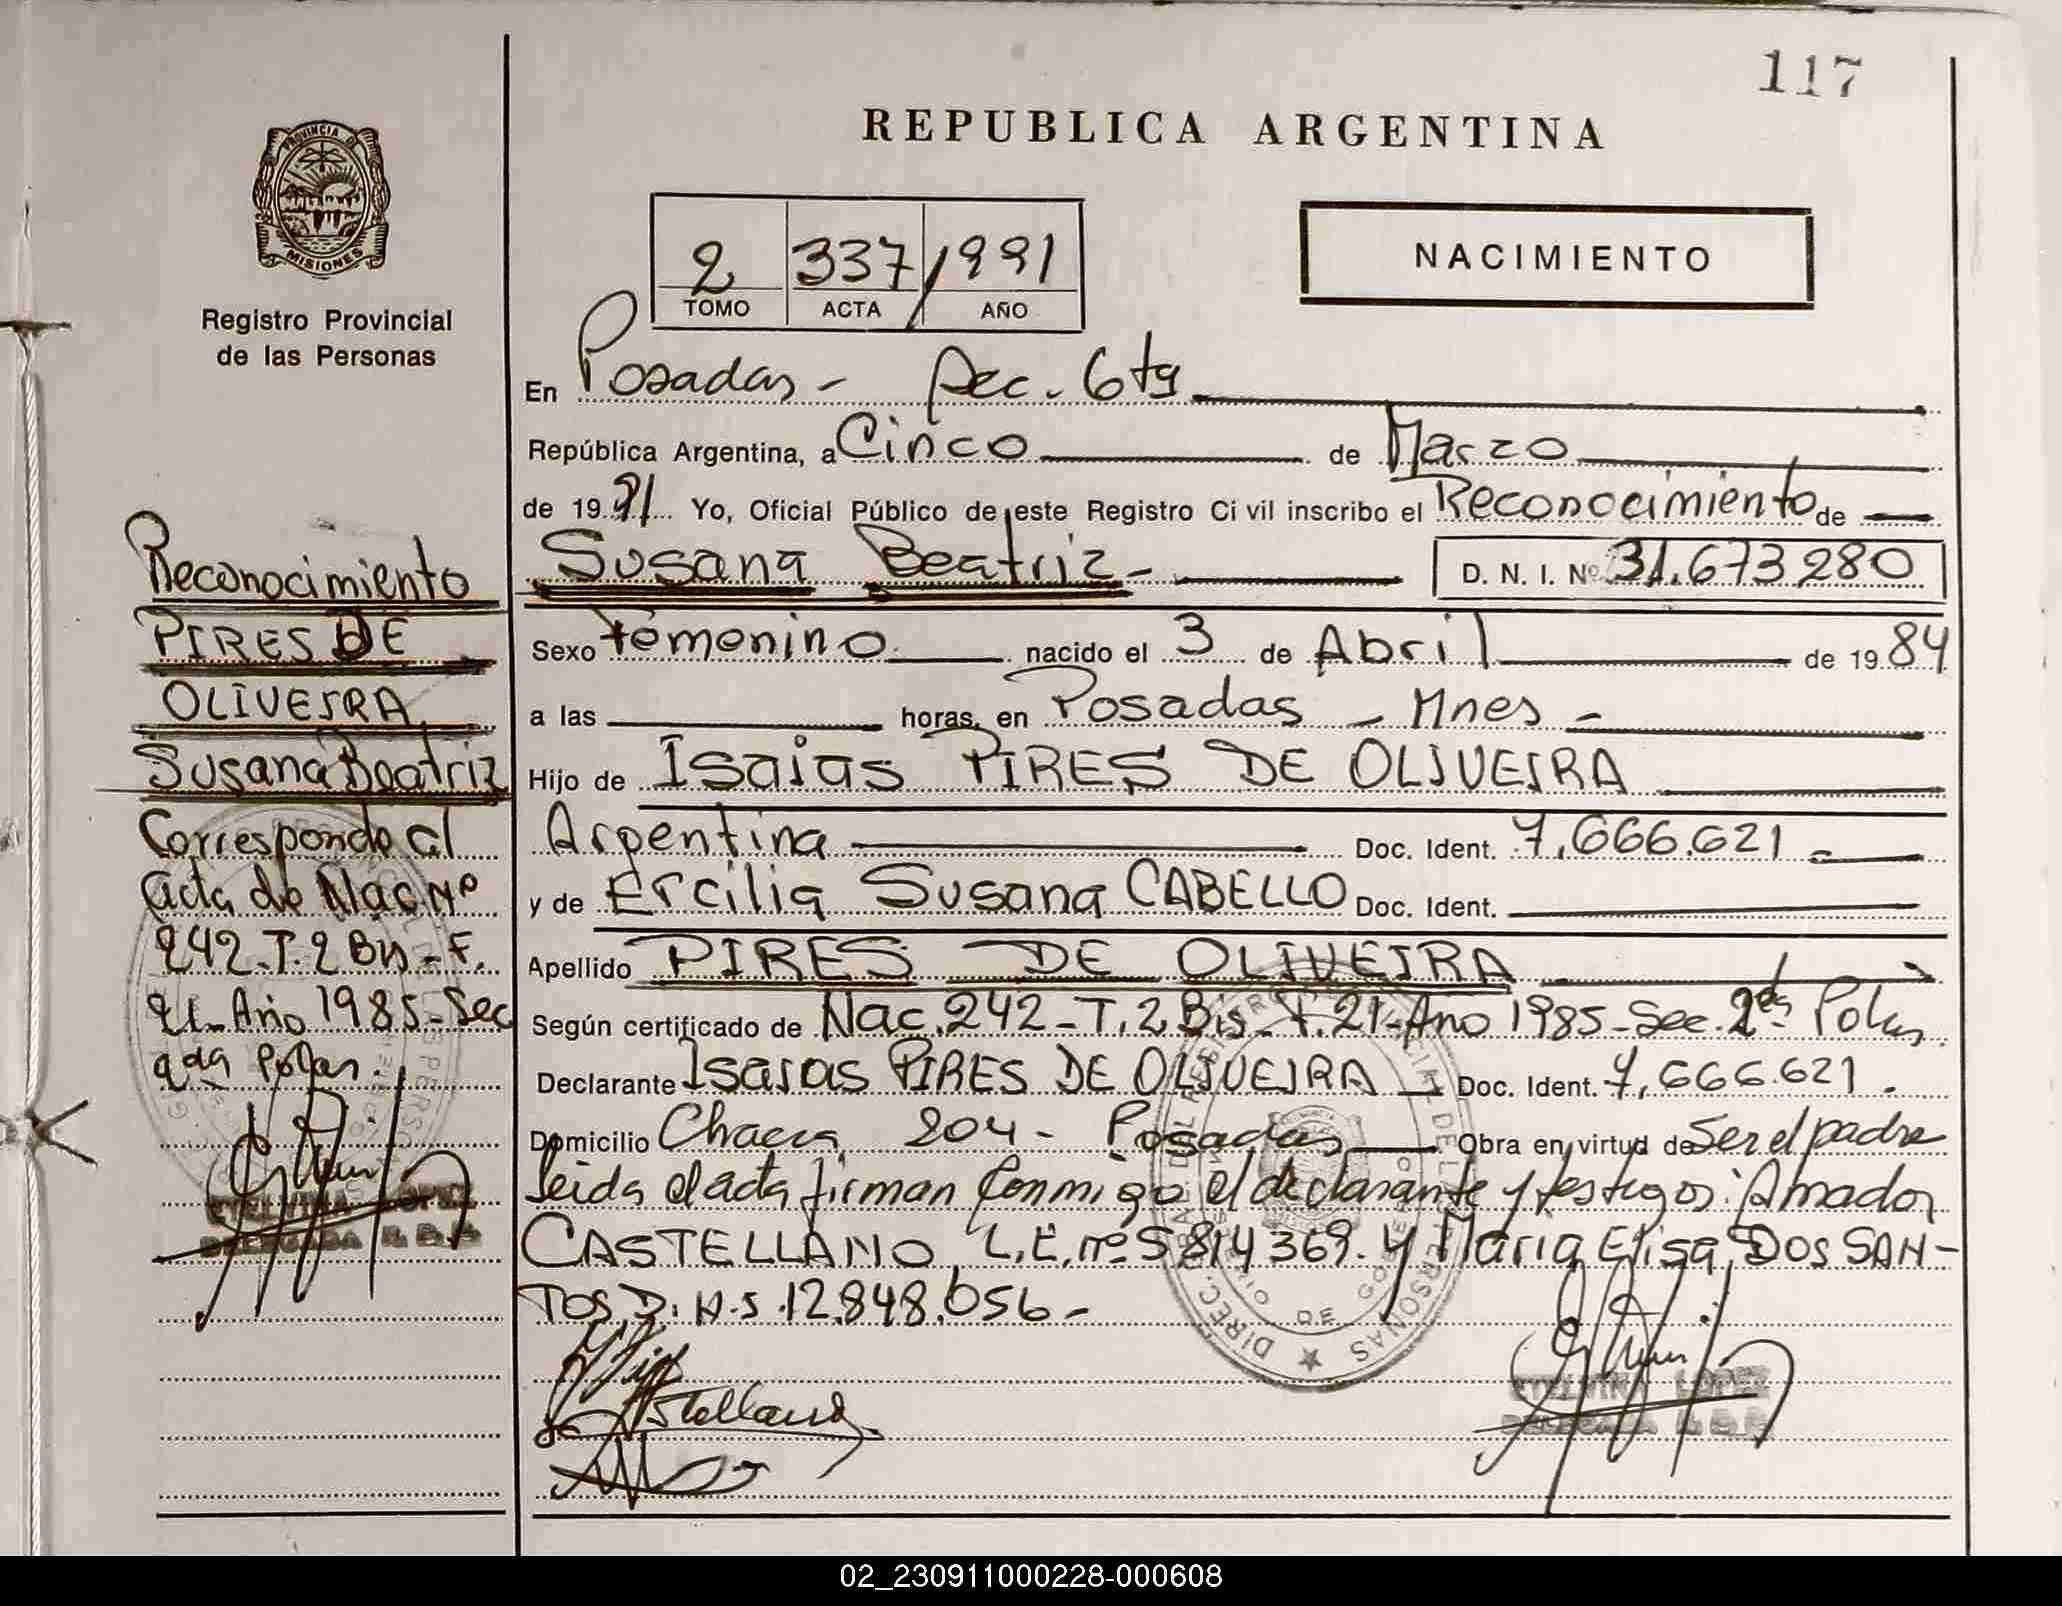 117
REPUBLICA ARGENTINA
PROVINCIA DE
MISIONES
Registro Provincial
de las Personas
2 337 1991
TOMO ACTA AÑO
NACIMIENTO
En Posadas - Sec. 6ta
República Argentina, a Cinco de Marzo
de 1991 Yo, Oficial Público de este Registro Civil inscribo el Reconocimiento de
Susana Beatriz - D. N. I. Nº 31.673280
Sexo Femenino nacido el 3 de Abril de 1984
a las horas, en Posadas - Mnes -
Hijo de Isaias PIRES DE OLIVEIRA
Argentina Doc. Ident. 7.666.621 -
y de Ercilia Susana CABELLO Doc. Ident.
Apellido PIRES DE OLIVEIRA
Según certificado de Nac. 242 - T. 2 Bis - F. 21 - Año 1985 - Sec. 2da Pdas.
Declarante Isaias PIRES DE OLIVEIRA - Doc. Ident. 7.666.621.
Domicilio Chacra 204 - Posadas Obra en virtud de Ser el padre
leida el acta firman conmigo el declarante y testigos: Amador
CASTELLANO L.E. nº 5814369. y Maria Elisa DOS SAN-
TOS D.N.I. 12.848.056 -
Castellano
EVELVINA LOPEZ
DELEGADA R.D.P.
Reconocimiento
PIRES DE
OLIVEIRA
Susana Beatriz
Corresponde al
acta de Nac Nº
242 - T. 2 Bis - F.
21 - Año 1985 - Sec
2da Pdas.
02_230911000228-000608